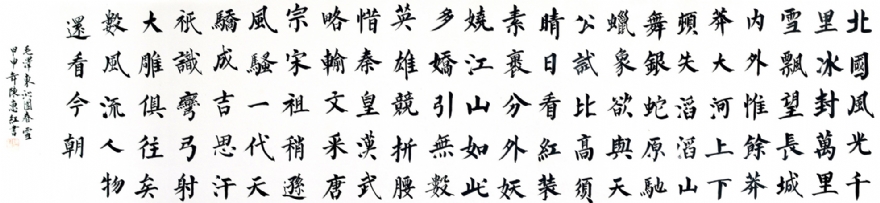 北國風光千
里冰封萬里
雪飄望長城
內外惟餘莽
莽大河上下
頓失滔滔山
舞銀蛇原馳
蠟象欲與天
公試比高須
晴日看紅裝
素裹分外妖
嬈江山如此
多嬌引無數
英雄競折腰
惜秦皇漢武
略輸文采唐
宗宋祖稍遜
風騷一代天
驕成吉思汗
祇識彎弓射
大雕俱往矣
數風流人物
還看今朝
毛澤東沁園春雪
甲申陳惠紅書